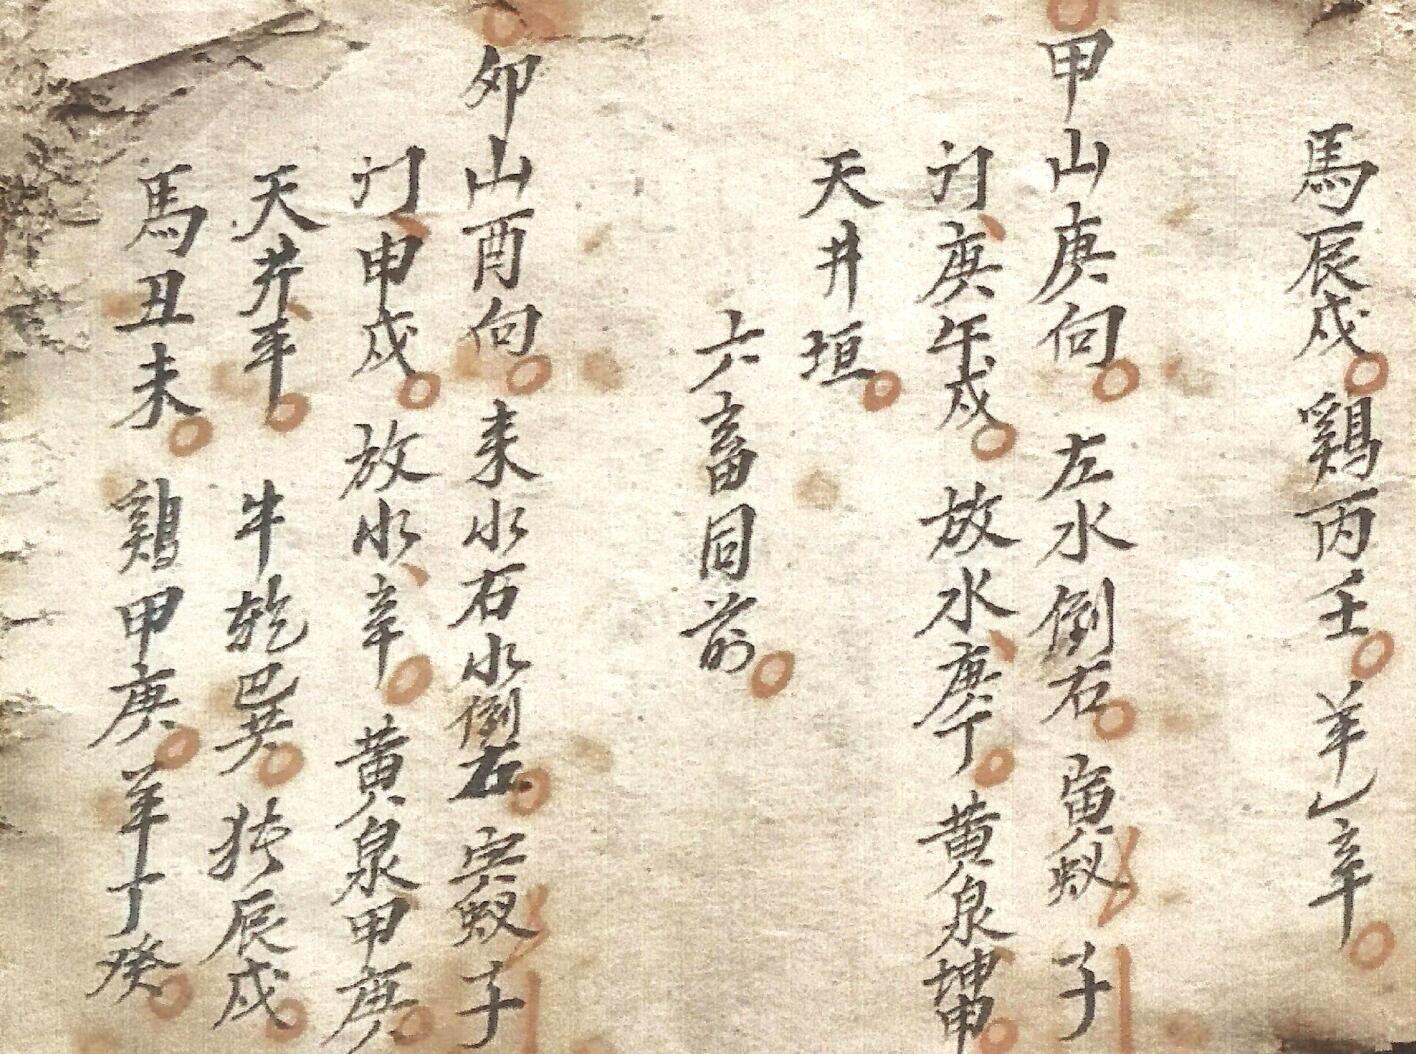 馬辰戌鷄丙壬羊乙辛
甲山庚向左水倒右寅蚁子
门庚午戌放水庚丁黄泉坤申
天井垣
六畜同前
卯山酉向来水右水倒左寅蚁子
门申戌放水辛黄泉甲庚
天井平牛乾巴巽猪辰戌
馬丑未鷄甲庚羊丁癸